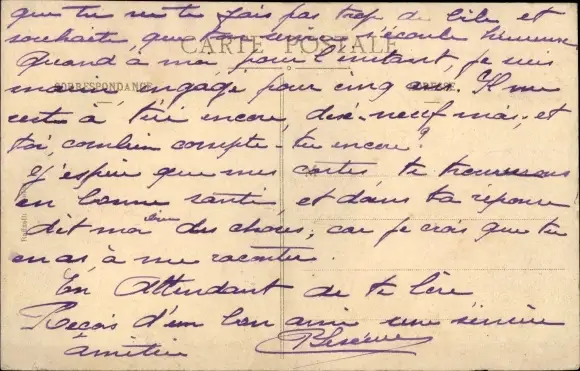 que tu ne te fais pas trop de bile et
souhaite que ton service s'écoule heureux
CARTE POSTALE
Quand à moi pour l'instant, je suis
marin, engagé pour cinq ans. Il me
CORRESPONDANCE
reste à tiré encore, dix-neuf mois, et
toi, combien compte-tu encore?
J'espère que mes cartes te trouverons
en bonne santé et dans ta réponse
dit moi bien des choses, car je crois que tu
en as à me raconter.
En Attendant de te lire
Reçois d'un bon ami une sincère
amitié